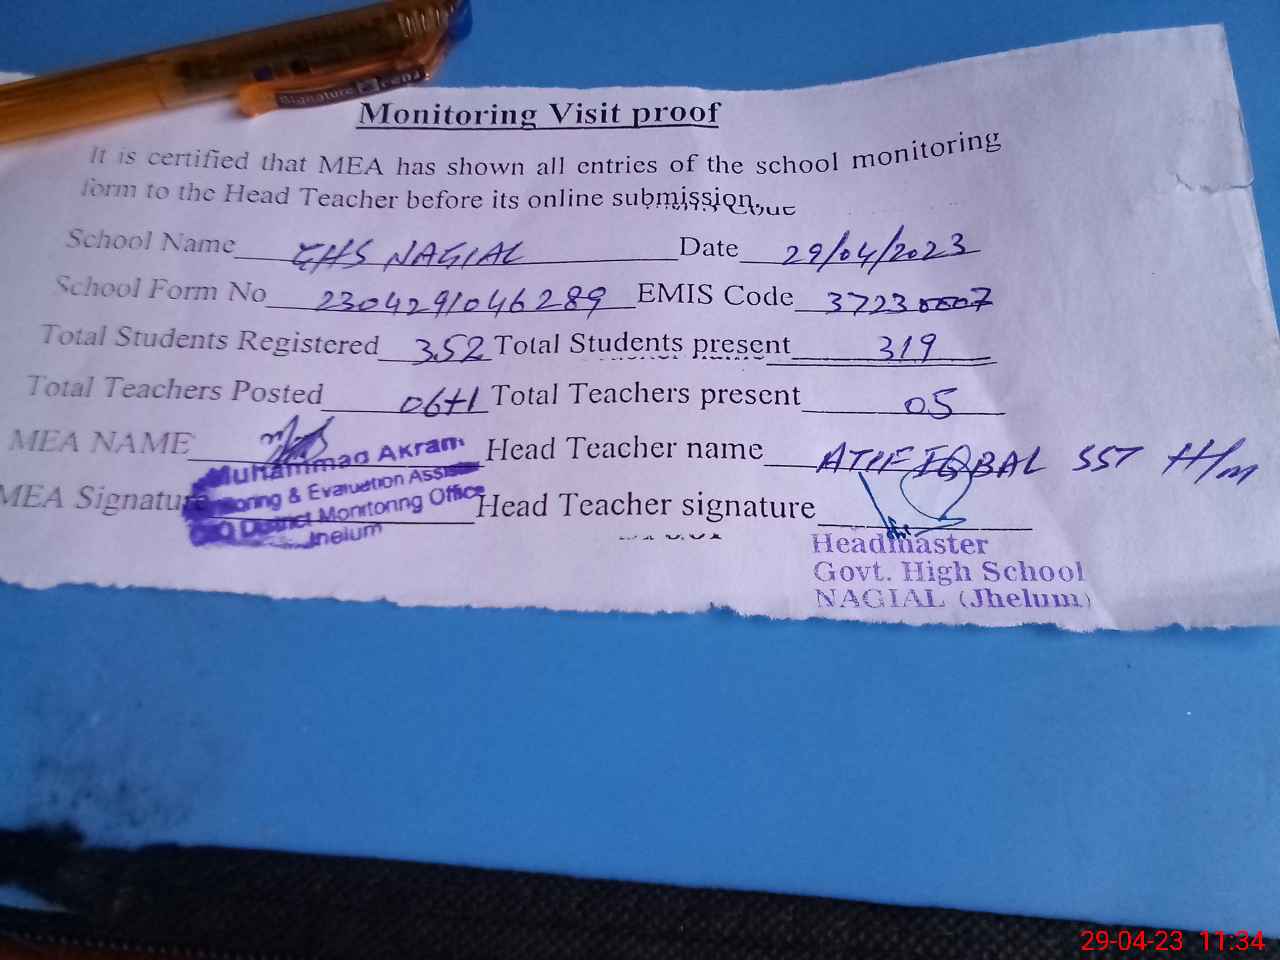 Signature
Monitoring Visit proof
It is certified that MEA has shown all entries of the school monitoring
form to the Head Teacher before its online submission.
School Name GHS NAGIAL Date 29/04/2023
School Form No 2304291046289 EMIS Code 37230007
Total Students Registered 352 Total Students present 319
Total Teachers Posted 06+1 Total Teachers present 05
MEA NAME Head Teacher name ATIF IQBAL SST H/m
Muhammad Akram
MEA Signature Head Teacher signature
& Evaluation
District Monitoring Office
Jhelum
Headmaster
Govt. High School
NAGIAL (Jhelum)
29-04-23 11:34